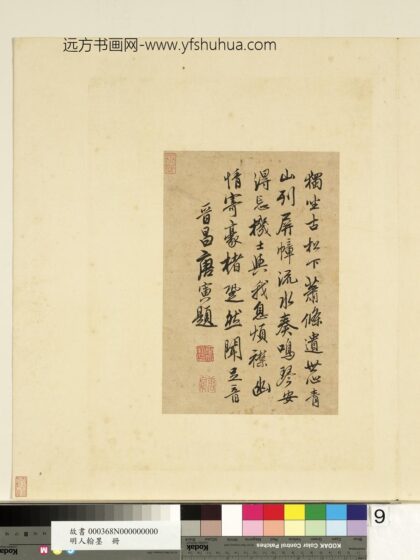 远方书画网-www.yfshuhua.com
獨坐古松下蕭條遺世心青
山列屏幛流水奏鳴琴安
得忘機士與我息煩襟幽
情寄豪楮跫然聞足音
晉昌唐寅題
故書 000368N000000000
明人翰墨 冊
Kodak
KODAK Color Control Patches
9